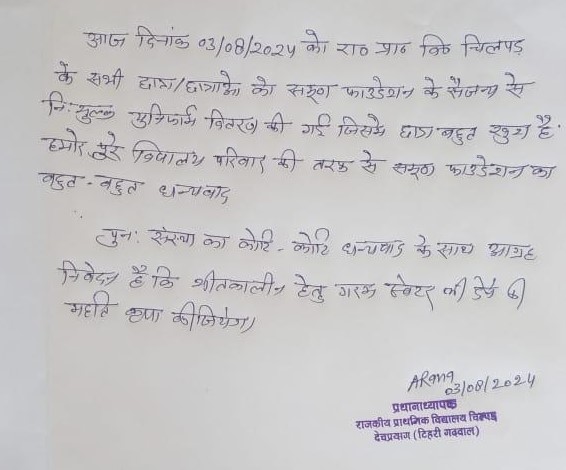 आज दिनांक 03/08/2024 को रा० प्रा० वि० चिलपड़
के सभी छात्र/छात्राओं को समूण फाउंडेशन के सौजन्य से
नि:शुल्क यूनिफार्म वितरण की गई जिसमें छात्र बहुत खुश है।
हमारे पूरे विद्यालय परिवार की तरफ से समूण फाउंडेशन का
बहुत-बहुत धन्यवाद
पुन: संस्था का कोटि-कोटि धन्यवाद के साथ आग्रह
निवेदन है कि शीतकालीन हेतु गरम स्वेटर भी देने की
महति कृपा कीजियेगा
03/08/2024
प्रधानाध्यापक
राजकीय प्राथमिक विद्यालय चिलपड़
देवप्रयाग (टिहरी गढ़वाल)